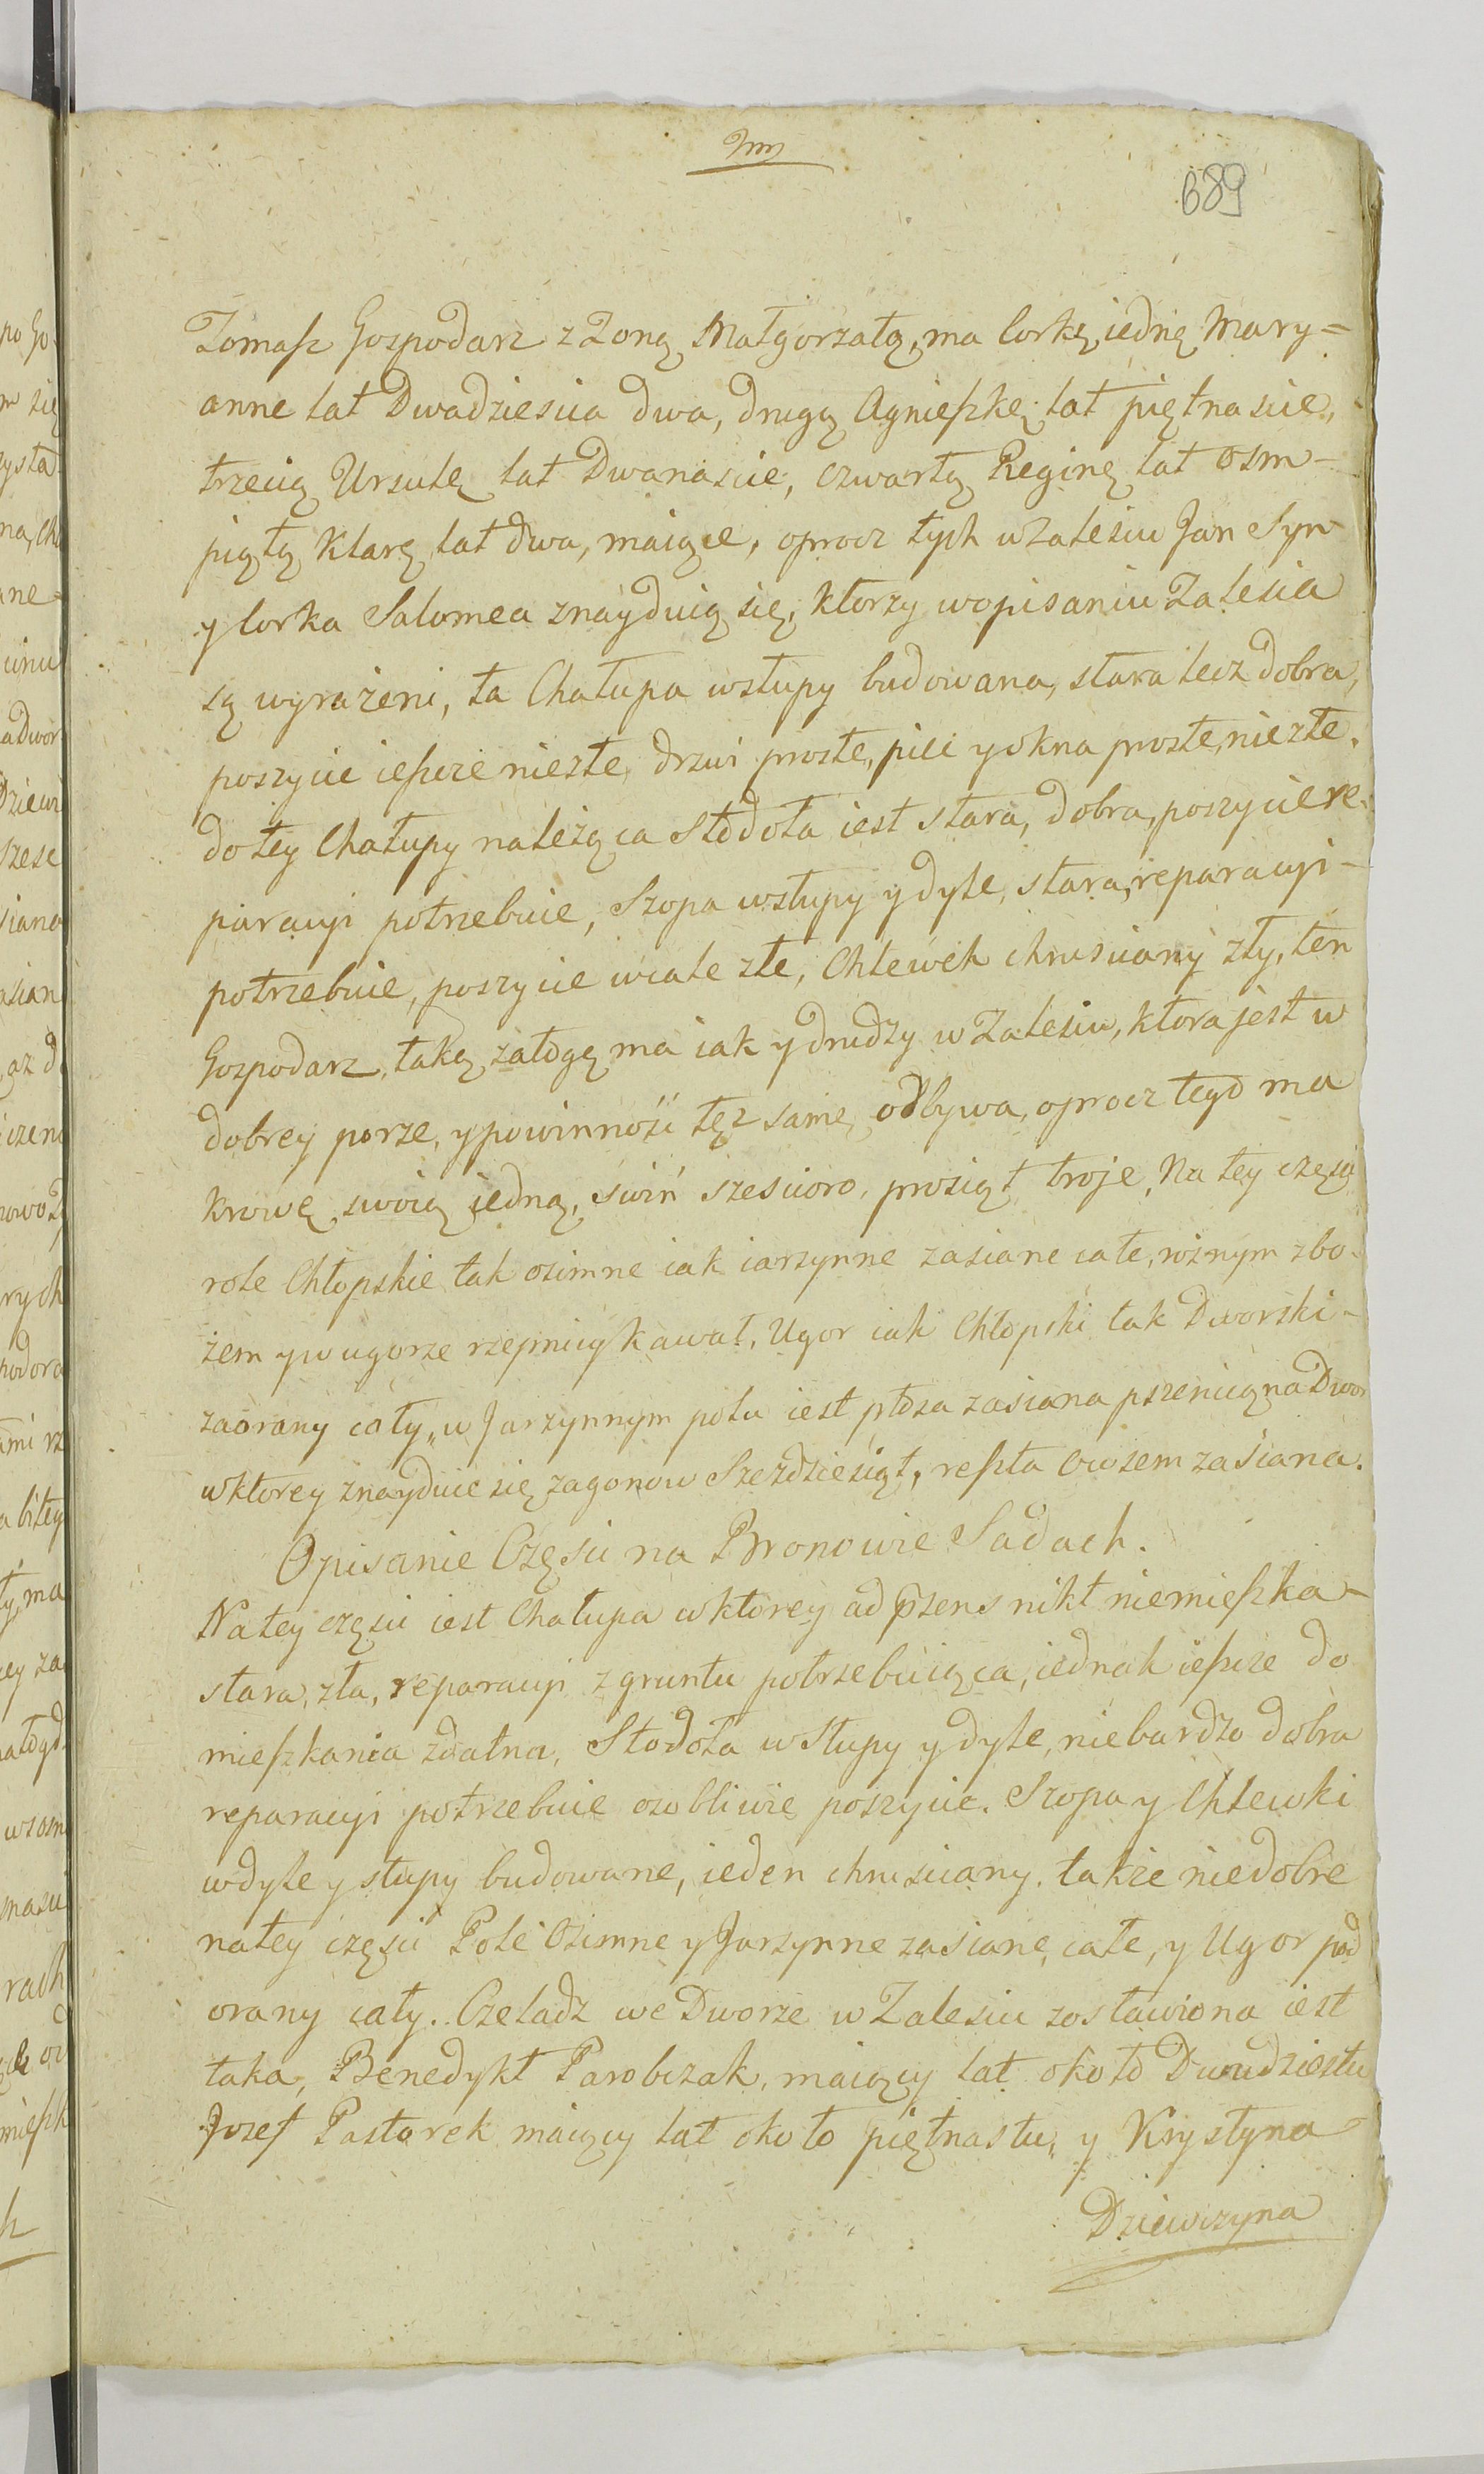 689
Tomasz Gospodarz z Żoną Małgorzatą, ma Corkę iednę Mary=
annę lat Dwadziescia dwa, drugą Agnieszkę lat piętnascie,
trzecią Ursulę lat Dwanascie, czwartą Reginę lat osm
piątą Klarę lat dwa, maiące, oprocz tych w Zalesiu Jan Syn
y Corka Salomea znayduią się, ktorzy w opisaniu Zalesia
są wyrażeni, ta Chałupa w słupy budowana, stara lecz dobra,
poszycie ieszcze niezłe, drzwi proste, piec y okna proste, niezłe,
do tey Chałupy należąca Stodoła iest stara, dobra, poszycie re-
paracyi potrzebuie, Szopa w słupy y dyle, stara, reparacyi
potrzebuie, poszycie wcale złe, Chlewek chrusciany zły, ten
Gospodarz, taką załogę ma iak y drudzy w Zalesiu, ktora jest w
dobrey porze, y powinność tęż samę odbywa, oprocz tego ma
krowę swoią iedną, świń szescioro, prosiąt troje, Na tey części
role Chłopskie tak ozimne iak iarzynne zasiane całe, rożnym zbo-
żem y w ugorze rzepnicy kawał, Ugor iak Chłopski tak Dworski
zaorany cały, w Jarzynnym polu iest płosa zasiana pszenicą na Dwor
w ktorey znayduie się zagonow Szezdziesiąt, reszta Owsem zasiana.
Opisanie Części na Pronowie Sadach.
Na tey części iest Chałupa w ktorey ad præsens nikt niemieszka
stara, zła, reparacyi z gruntu potrzebuiąca, iednak ieszcze do
mieszkania zdatna, Stodoła w Słupy y dyle, niebardzo dobra
reparacyi potrzebuie osobliwie poszycie. Szopa y Chlewki
w dyle y słupy budowane, ieden chrusciany, także niedobre
na tey części Pole Ozimne y Jarzynne zasiane, całe, y Ugor pod
orany cały. Czeladz we Dworze w Zalesiu zostawiona iest
taka, Benedykt Parobczak, maiący lat około Dwudziestu
Jozef Pastorek maiący lat około piętnastu, y Krystyna
Dziewczyna